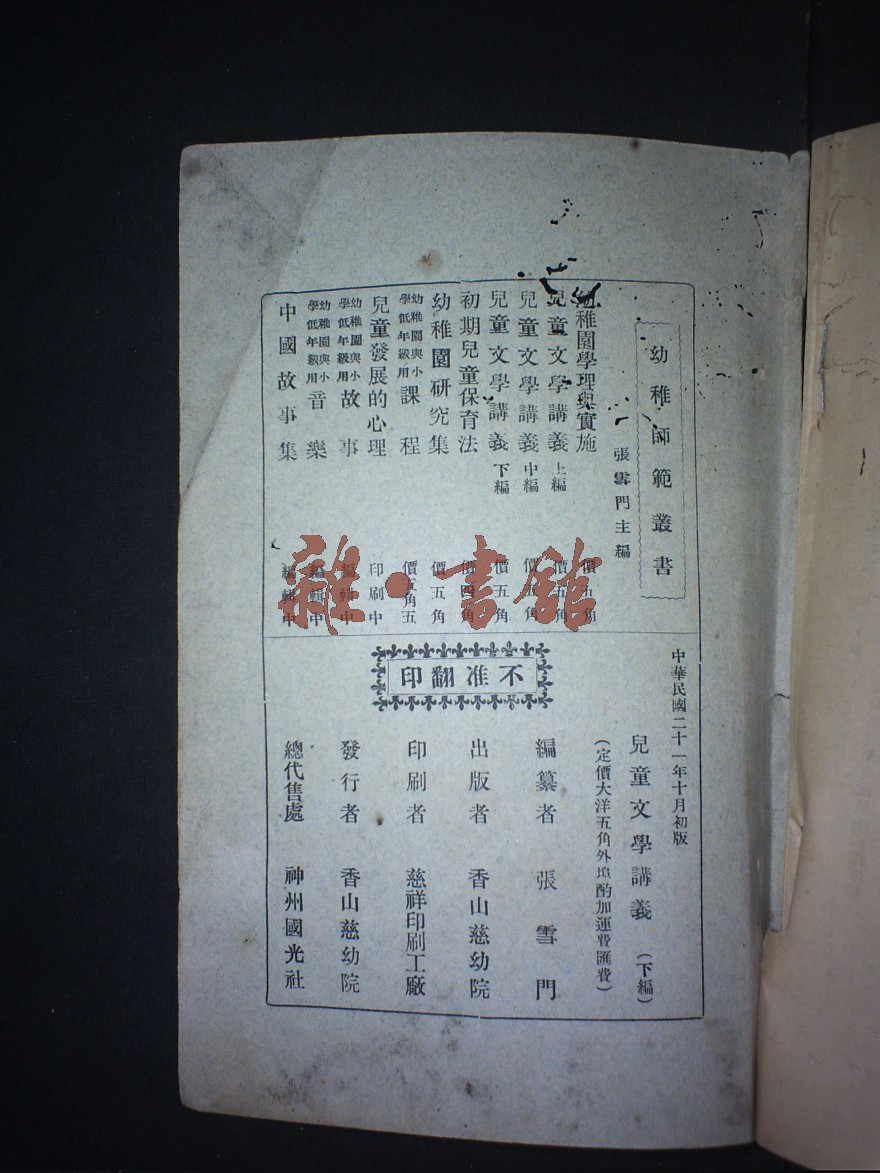 幼稚師範叢書
張雪門主編
幼稚園學理與實施 價五角
兒童文學講義上編 價五角
兒童文學講義中編 價五角
兒童文學講義下編 價五角
初期兒童保育法 價四角
幼稚園研究集 價五角
幼稚園與小學低年級用課程 價五角五
兒童發展的心理 印刷中
幼稚園與小學低年級用故事 編輯中
幼稚園與小學低年級用音樂 編輯中
中國故事集 編輯中
雜·書館
不准翻印
中華民國二十一年十月初版
兒童文學講義(下編)
(定價大洋五角外埠酌加運費匯費)
編纂者 張雪門
出版者 香山慈幼院
印刷者 慈祥印刷工廠
發行者 香山慈幼院
總代售處 神州國光社